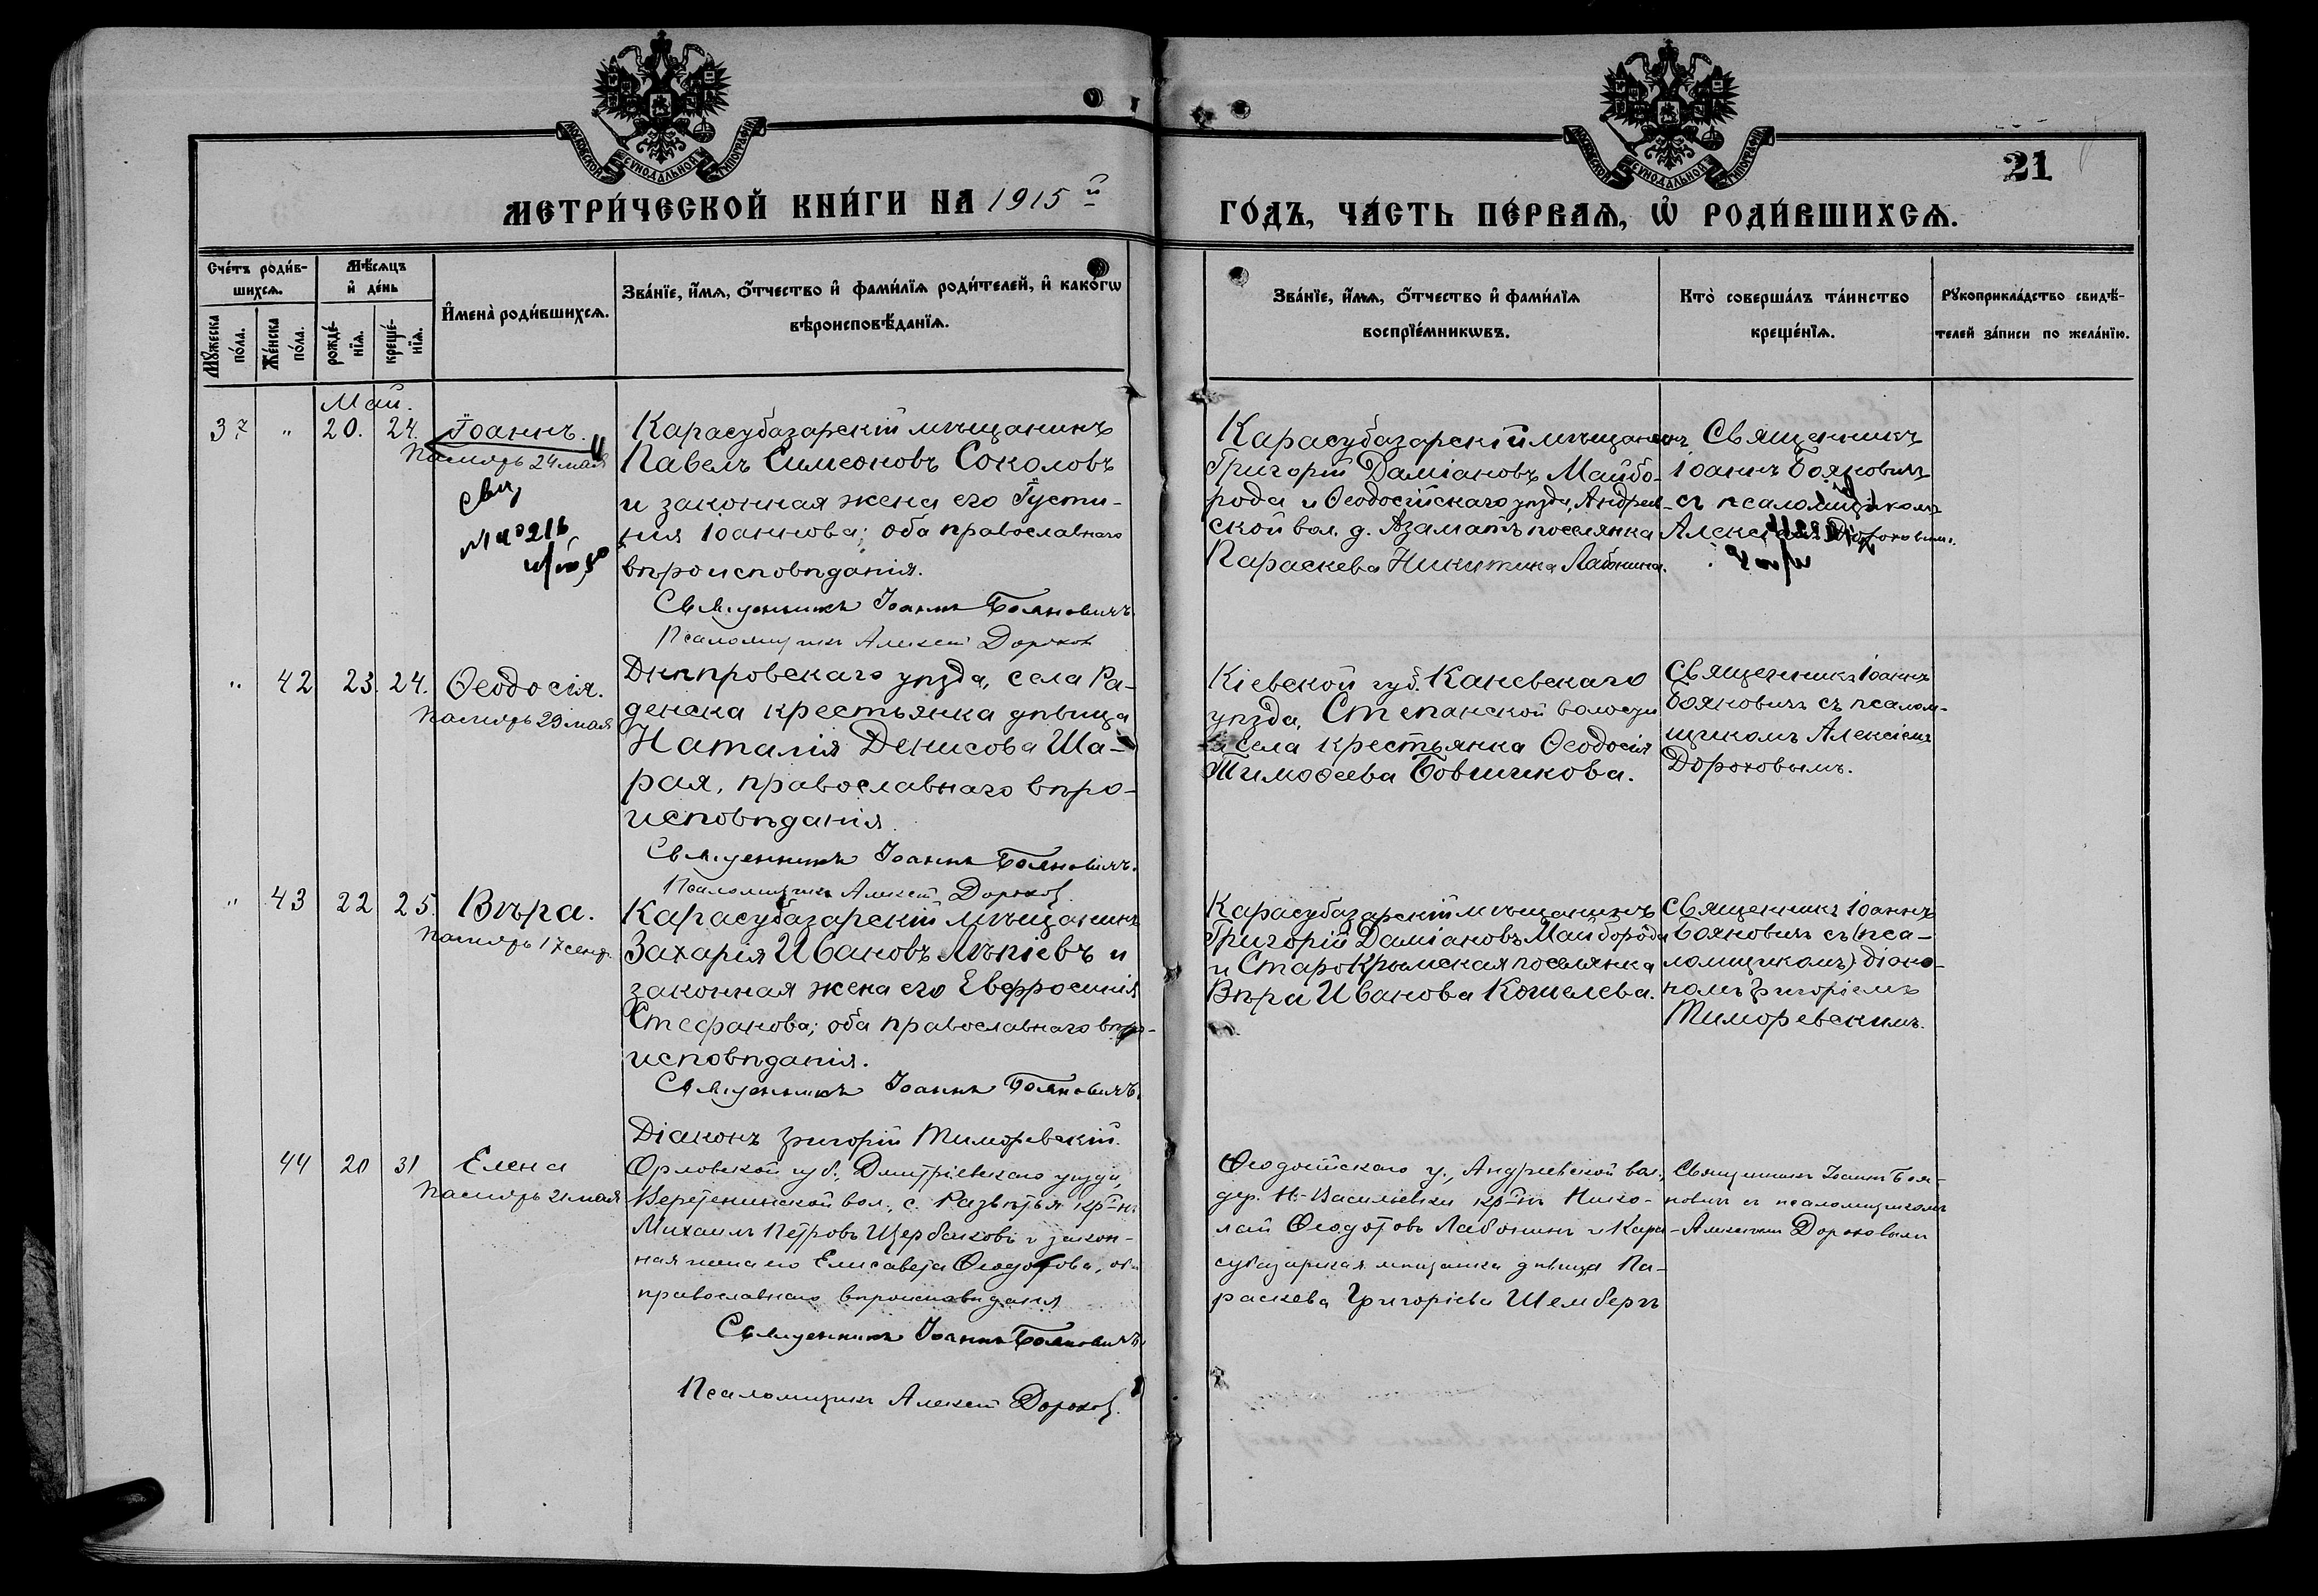 МОСКОВСКОЙ СѴНОДАЛЬНОЙ ТИПОГРАФІИ
МОСКОВСКОЙ СѴНОДАЛЬНОЙ ТИПОГРАФІИ
21
МЕТРИ́ЧЕСКОЙ КНИ́ГИ НА 1915 й
ГО́ДЪ, ЧА́СТЬ ПЕ́РВАѦ, Ѡ҆ РОДИ́ВШИХСѦ.
Сче́тъ роди́в-
шихсѧ.
Мꙋ́жеска по́ла.
Же́нска по́ла.
Мѣ́сѧцъ
и҆ де́нь
рожде́-
нїѧ.
креще́-
нїѧ.
И҆мена̀ роди́вшихсѧ.
Зва́нїе, и҆́мѧ, ѻ҆́тчество и҆ фами́лїѧ роди́телей, и҆ како́гѡ
вѣроисповѣ́данїѧ.
Зва́нїе, и҆́мѧ, ѻ҆́тчество и҆ фами́лїѧ
воспрїе́мникѡвъ.
Кто̀ соверша́лъ та́инство
креще́нїѧ.
Рꙋкоприкла́дство свидѣ́-
телей за́писи по жела́нїю.
Май.
37 " 20. 24. Іоаннъ.
Память 24 мая
Карасубазарскій мѣщанинъ
Павелъ Симеоновъ Соколовъ
и законная жена его Іусти-
нія Іоаннова; оба православнаго
вѣроисповѣданія.
Священникъ Іоаннъ Бояновичъ.
Псаломщикъ Алексей Дорохов
Карасубазарскій мѣщанинъ
Григорій Даміановъ Майбо-
рода и Ѳеодосійскаго уѣзда, Андреев-
ской вол. д. Азаматъ поселянка
Параскева Никитина Лабонина.
Священникъ
Іоаннъ Бояновичъ
съ псаломщикомъ
Алексіемъ Дороховымъ.
" 42 23. 24. Ѳеодосія.
Память 29 мая
Днѣпровскаго уѣзда, села Ра-
денска крестьянка дѣвица
Наталія Денисова Ша-
рая, православнаго вѣро-
исповѣданія.
Священникъ Іоаннъ Бояновичъ.
Псаломщикъ Алексей Дорохов.
Кіевской губ. Каневскаго
уѣзда, Степанской волости
и села крестьянка Ѳеодосія
Тимоѳеева Бовшикова.
Священникъ Іоаннъ
Бояновичъ съ псалом-
щикомъ Алексіемъ
Дороховымъ.
" 43 22 25. Вѣра.
Память 17 сент.
Карасубазарскій мѣщанинъ
Захарія Ивановъ
и
законная жена его Евфросинія
Стефанова; оба православнаго вѣро-
исповѣданія.
Священникъ Іоаннъ Бояновичъ.
Діаконъ Григорій Тиморевскій.
Карасубазарскій мѣщанинъ
Григорій Даміановъ Майборода
и СтароКрымская поселянка
Вѣра Иванова Кошелева.
Священникъ Іоаннъ
Бояновичъ съ (пса-
ломщикомъ) діако-
номъ Григоріемъ
Тиморевскимъ.
44 20 31 Елена
Память 21 мая
Орловской губ., Дмитріевскаго уѣзда,
Веретенинской вол., с. Развѣтья кр-нъ
Михаилъ Петровъ Щербаковъ и закон-
ная жена его Елисавета Ѳеодотова, оба
православнаго вѣроисповѣданія
Священникъ Іоаннъ Бояновичъ.
Псаломщикъ Алексей Дорохов.
Ѳеодосійскаго у., Андреевской вол.,
дер. Н-Васильевки кр-нъ Нико-
лай Ѳеодотовъ Лабонинъ и Кара-
субазарская мѣщанка дѣвица Па-
раскева Григоріева Шембергъ
Священникъ Іоаннъ Боя-
новичъ съ псаломщикомъ
Алексіемъ Дороховымъ